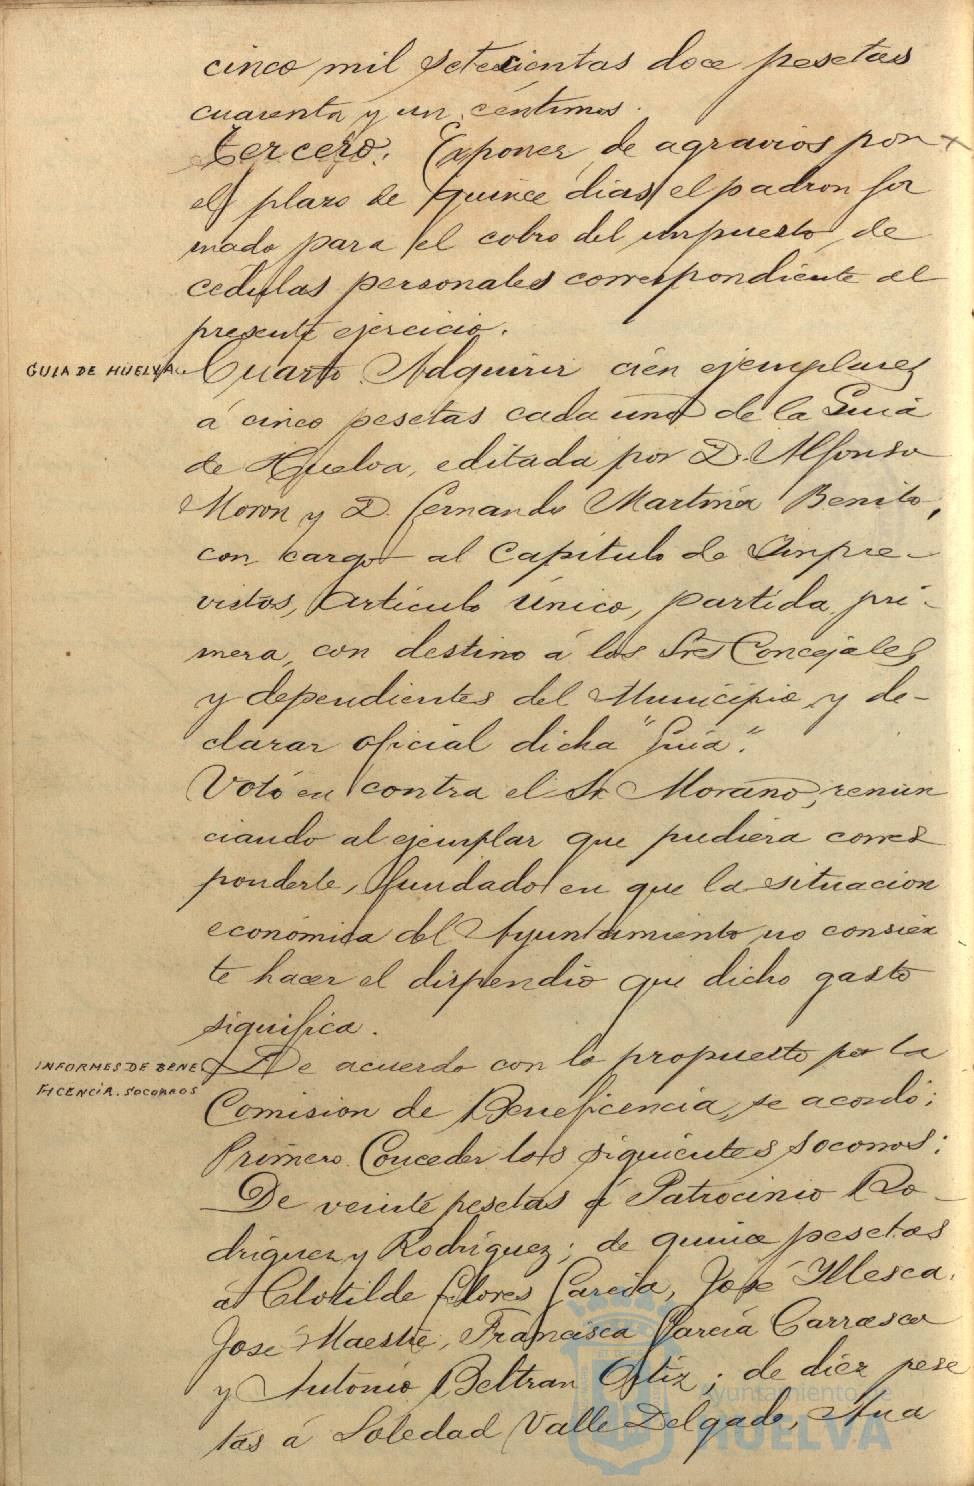 cinco mil setecientas doce pesetas
cuarenta y un céntimos.
Tercero. Exponer de agravios por
el plazo de quince dias el padron for
mado para el cobro del impuesto de
cedulas personales correspondiente al
presente ejercicio.
GUIA DE HUELVA.
Cuarto Adquirir cien ejemplares
á cinco pesetas cada uno de la Guia
de Huelva, editada por D. Alfonso
Moron y D. Fernando Martin Benito,
con cargo al Capitulo de Impre-
vistos, Articulo único, partida pri-
mera, con destino á los Sres Concejales
y dependientes del Municipio y de-
clarar oficial dicha "Guia".
Votó en contra el Sr Morano, renun
ciando al ejemplar que pudiera corres
ponderle, fundado en que la situacion
económica del Ayuntamiento no consien
te hacer el dispendio que dicho gasto
significa.
INFORMES DE BENE
FICENCIA. SOCORROS
De acuerdo con lo propuesto por la
Comision de Beneficencia, se acordó:
Primero Conceder los siguientes socorros:
De veinte pesetas á Patrocinio Ro-
driguez y Rodriguez; de quince pesetas
á Clotilde Flores Garcia, José Yllesca.
José Maestre, Francisca Garcia Carrasco
y Antonio Beltran Ortiz; de diez pese
tas á Soledad Valle Delgado, Ana
Ayuntamiento de
HUELVA